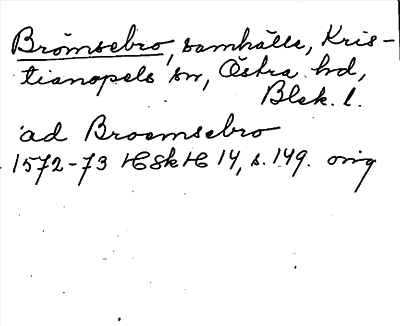 Brömsebro, samhälle, Kris-
tianopels sn, Östra hd,
Blek. l.
ad Broemsebro
1572-73 HSkH 14, s. 149. orig